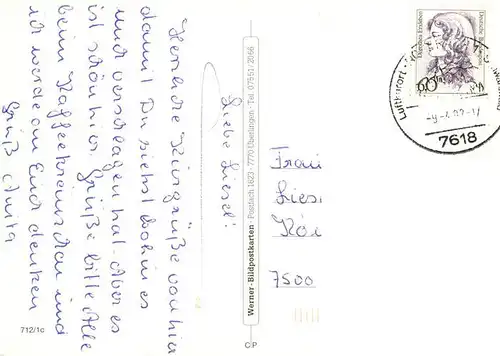 Liebe Liesel!
Herzliche Kurgrüße von hier
damit Du siehst wohin es
und verschlagen hat. Aber es
ist schön hier. Grüße bitte Alle
beim Kaffeekränzchen und
ich werde an Euch denken
Gruß Anita
712/1c
Werner-Bildpostkarten · Postfach 1623 · 7770 Überlingen · Tel. 07551/2066
CP
Deutsche Bundespost
60
Luftkurort
7618
Frau
Liesel
7500